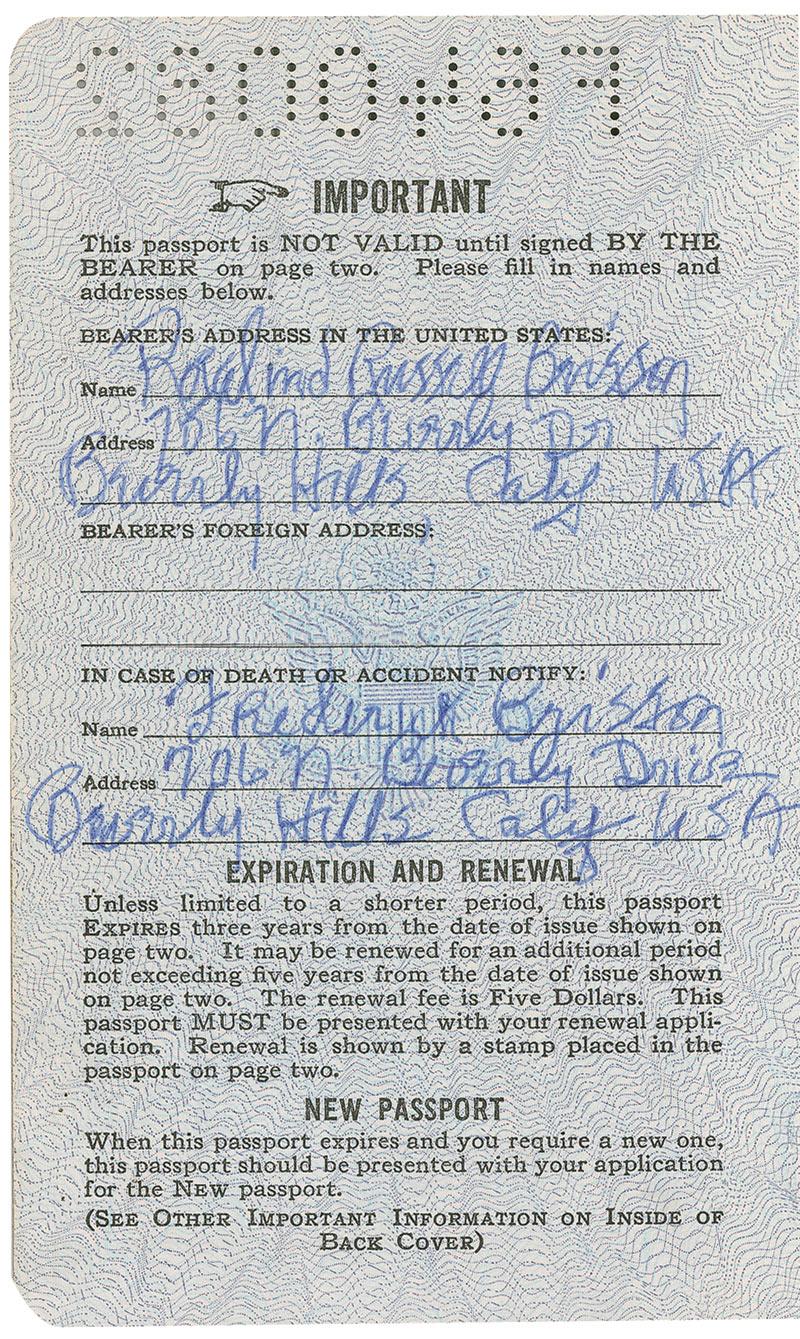 IMPORTANT
This passport is NOT VALID until signed BY THE
BEARER on page two. Please fill in names and
addresses below.
BEARER'S ADDRESS IN THE UNITED STATES:
Name Rosalind Russell Brisson
Address 706 N. Beverly Dr
Beverly Hills Calif. USA
BEARER'S FOREIGN ADDRESS:
IN CASE OF DEATH OR ACCIDENT NOTIFY:
Name Frederick Brisson
Address 706 N. Beverly Drive
Beverly Hills Calif USA
EXPIRATION AND RENEWAL
Unless limited to a shorter period, this passport
EXPIRES three years from the date of issue shown on
page two. It may be renewed for an additional period
not exceeding five years from the date of issue shown
on page two. The renewal fee is Five Dollars. This
passport MUST be presented with your renewal appli-
cation. Renewal is shown by a stamp placed in the
passport on page two.
NEW PASSPORT
When this passport expires and you require a new one,
this passport should be presented with your application
for the NEW passport.
(SEE OTHER IMPORTANT INFORMATION ON INSIDE OF
BACK COVER)